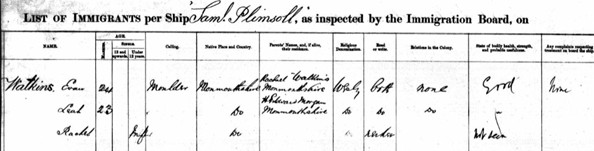 LIST OF IMMIGRANTS per Ship "Saml. Plimsoll," as inspected by the Immigration Board, on
NAME. AGE. Calling. Native Place and Country. Parents' Names, and, if alive, their residence. Religious Denomination. Read or write. Relations in the Colony. State of bodily health, strength, and probable usefulness. Any complaints respecting treatment on board the ship.
12 and upwards. Under 12 years.
Watkins Evan 24 Moulder Monmouthshire Rachel Watkins Monmouthshire Wesly both none Good None
Leah 23 Do Monmouthshire Do Do Do
Rachel Inft Do reader Not seen